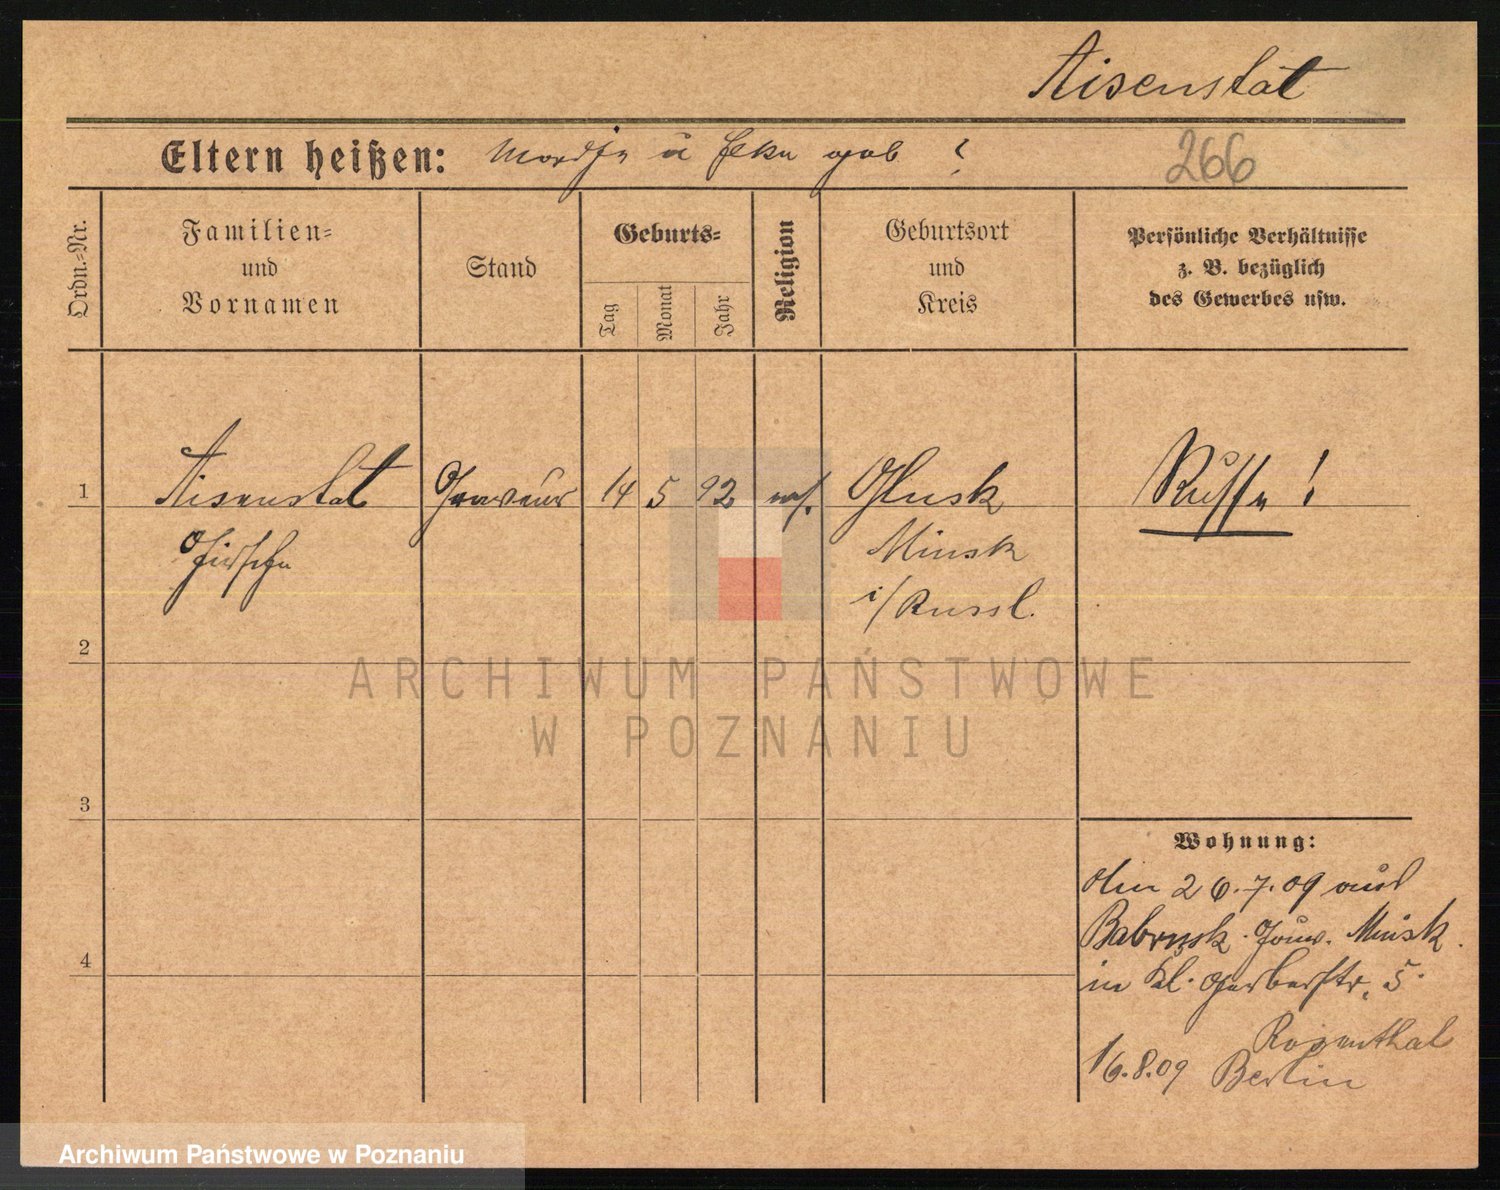 Aisenstat
Eltern heißen: Mordje u geb ?
266
Ordn.=Nr.
Familien=
und
Vornamen
Stand
Geburts=
Tag
Monat
Jahr
Religion
Geburtsort
und
Kreis
Persönliche Verhältnisse
z. B. bezüglich
des Gewerbes usw.
1 Aisenstat Graveur 14 5 92 Glusk Russe!
Hirsche Minsk
i/Russl.
2
3
4
Wohnung:
Am 26.7.09 aus
Babrusk. Gouv. Minsk.
in Kl. Gerberstr. 5.
Rosenthal
16.8.09 Berlin
ARCHIWUM PAŃSTWOWE
W POZNANIU
Archiwum Państwowe w Poznaniu